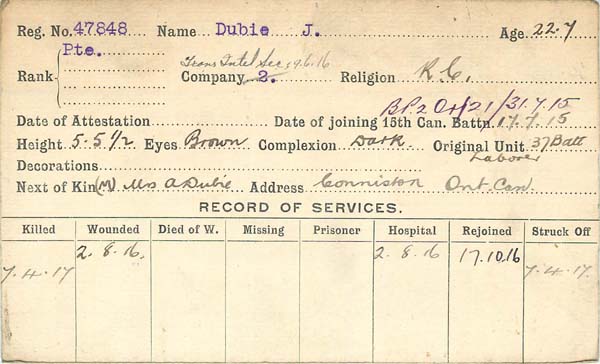 Reg. No. 47848 Name Dubie J. Age 22.7
Pte.
Trans Intel Sec. 9.6.16
Rank Company 2. Religion R.C.
B.P.2 Ord 21/31.7.15
Date of Attestation Date of joining 15th Can. Battn. 17.7.15
Height 5-5 1/2 Eyes Brown Complexion Dark Original Unit 37 Batt
Laborer
Decorations
Next of Kin (M) Mrs A Dubie Address Conniston Ont. Can.
RECORD OF SERVICES.
Killed Wounded Died of W. Missing Prisoner Hospital Rejoined Struck Off
2.8.16. 2.8.16 17.10.16
7.4.17 7.4.17.